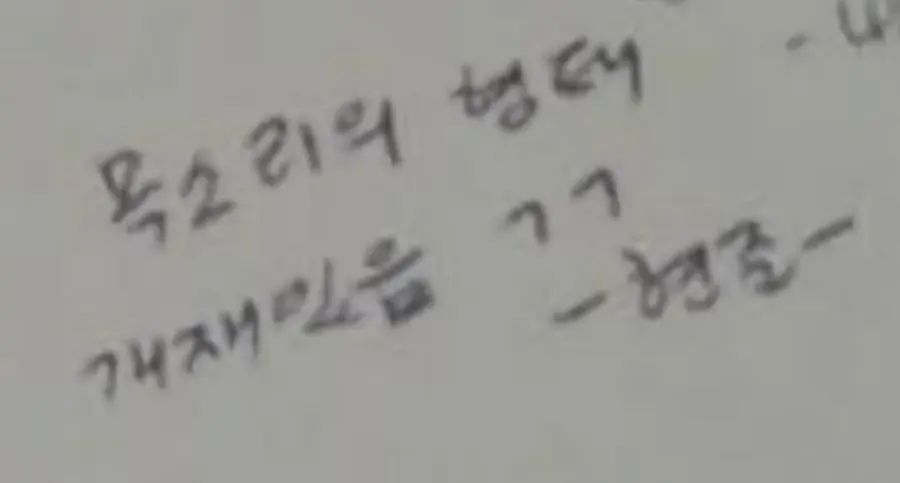 목소리의 형태 -
개재밌음 ㄱㄱ
-현준-